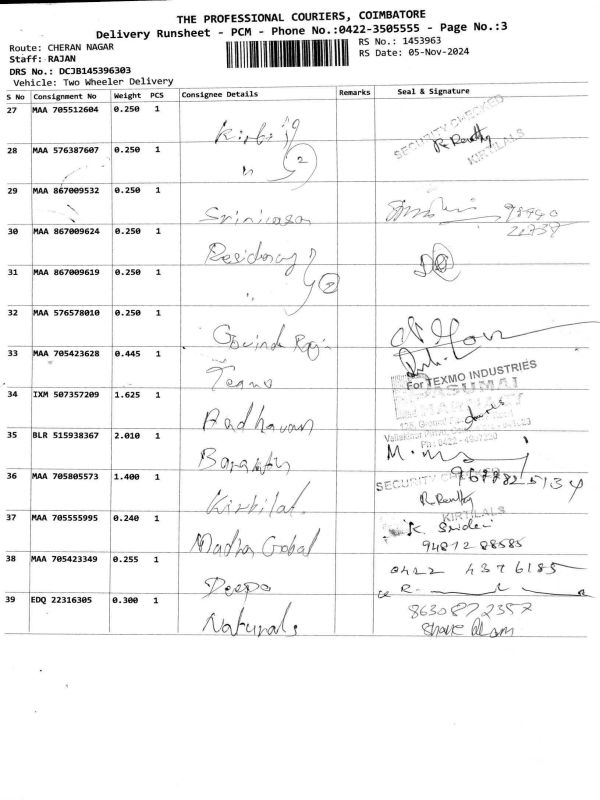 THE PROFESSIONAL COURIERS, COIMBATORE
Delivery Runsheet - PCM - Phone No.:0422-3505555 - Page No.:3
Route: CHERAN NAGAR
RS No.: 1453963
Staff: RAJAN
RS Date: 05-Nov-2024
DRS No.: DCJB145396303
Vehicle: Two Wheeler Delivery
S No Consignment No Weight PCS Consignee Details Remarks Seal & Signature
27 MAA 705512604 0.250 1
SECURITY CHECKED
KIRTILALS
28 MAA 576387607 0.250 1
2
29 MAA 867009532 0.250 1
Srinivasan
30 MAA 867009624 0.250 1
Residency
31 MAA 867009619 0.250 1
2
32 MAA 576578010 0.250 1
Govinda Raj
33 MAA 705423628 0.445 1
For TEXMO INDUSTRIES
34 IXM 507357209 1.625 1
Aadhavan
35 BLR 515938367 2.010 1
36 MAA 705805573 1.400 1
SECURITY CHECKED
Kirtilal
KIRTILALS
37 MAA 705555995 0.240 1
K. Sridevi
Madhan Gobal
9487288585
38 MAA 705423349 0.255 1
0422 4376185
Deepa
39 EDQ 22316305 0.300 1
8630872357
Naturals